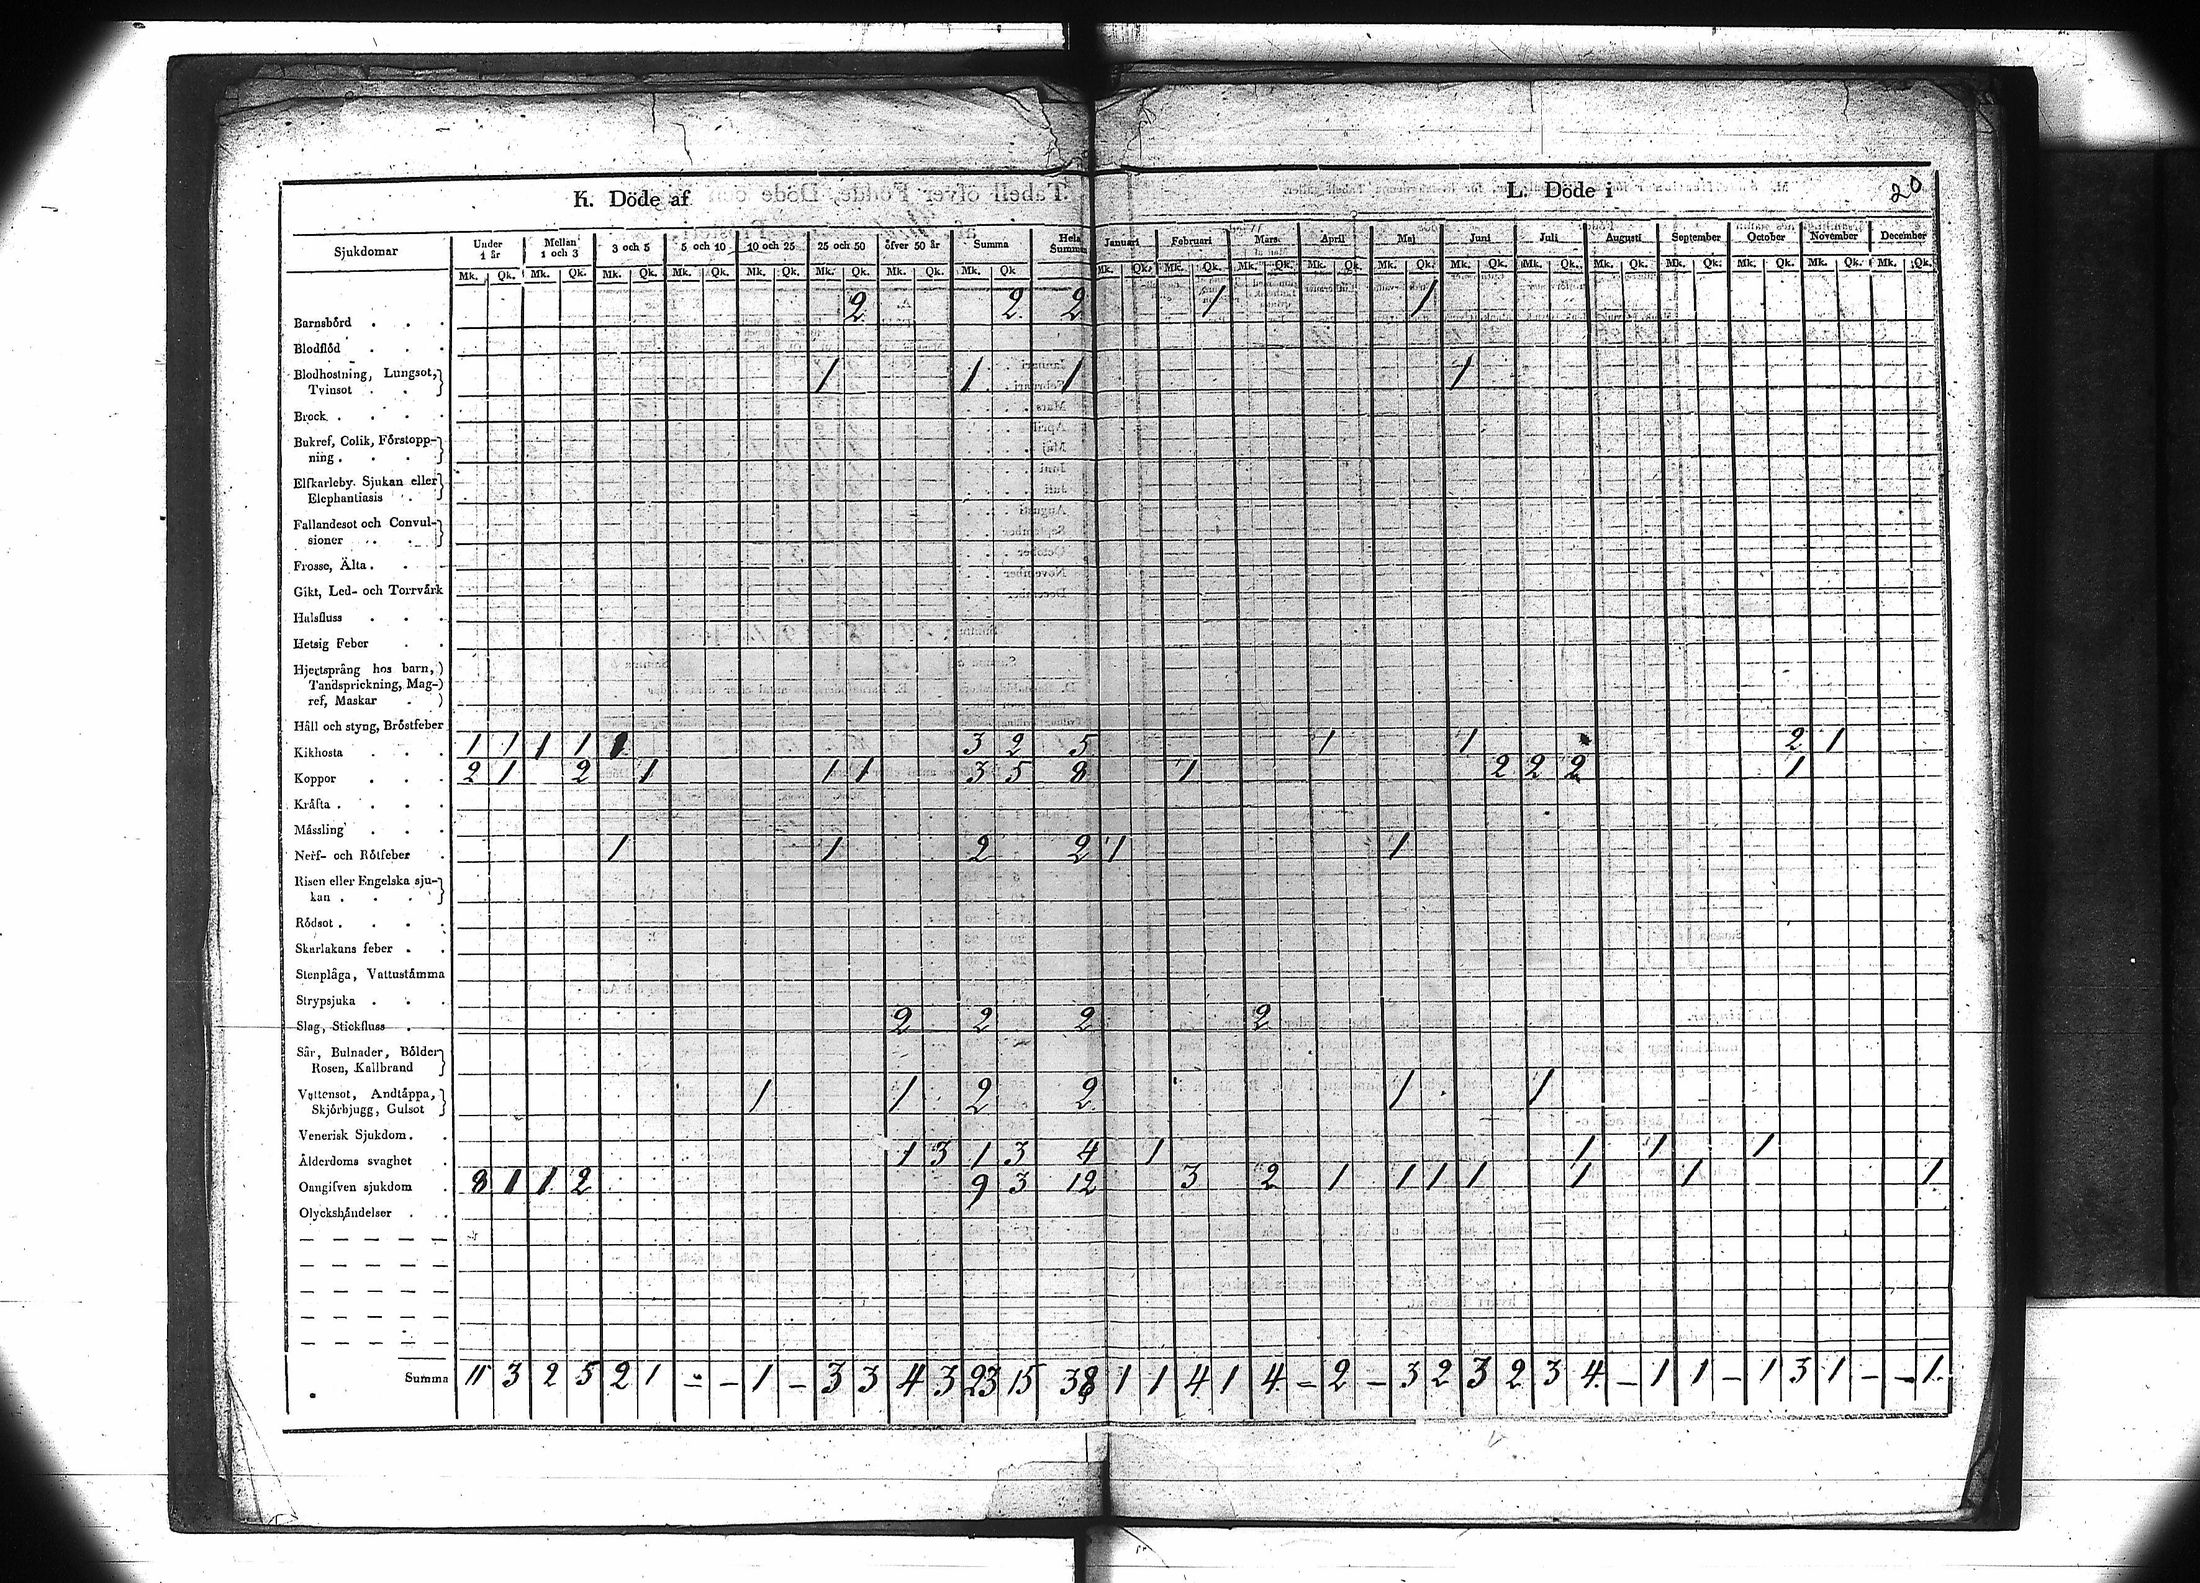 20
K. Döde af
L. Döde i
Sjukdomar Under 1 år Mellan 1 och 3 3 och 5 5 och 10 10 och 25 25 och 50 öfver 50 år Summa Hela Summan Januari Februari Mars April Maj Juni Juli Augusti September October November December
Mk. Qk. Mk. Qk. Mk. Qk. Mk. Qk. Mk. Qk. Mk. Qk. Mk. Qk. Mk. Qk Mk. Qk. Mk. Qk. Mk. Qk. Mk. Qk. Mk. Qk. Mk. Qk. Mk. Qk. Mk. Qk. Mk. Qk. Mk. Qk. Mk. Qk. Mk. Qk.
Barnsbörd . . . 2 2 2 1 1
Blodflöd . . .
Blodhostning, Lungsot,
Tvinsot . . 1 1 1 1
Brock . . . .
Bukref, Colik, Förstopp-
ning . . .
Elfkarleby. Sjukan eller
Elephantiasis .
Fallandesot och Convul-
sioner . .
Frosse, Älta . . .
Gikt, Led- och Torrvärk
Halsfluss . . .
Hetsig Feber . .
Hjertsprång hos barn,
Tandsprickning, Mag-
ref, Maskar .
Håll och styng, Bröstfeber
Kikhosta . . . 1 1 1 1 1 3 2 5 1 1 2 1
Koppor . . . 2 1 2 1 1 1 3 5 8 1 2 2 2 1
Kräfta . . . .
Mässling . . .
Nerf- och Rötfeber . 1 1 2 2 1 1
Risen eller Engelska sju-
kan . . .
Rödsot . . . .
Skarlakans feber . .
Stenplåga, Vattustämma
Strypsjuka . . .
Slag, Stickfluss . . 2 2 2 2
Sår, Bulnader, Bölder
Rosen, Kallbrand
Vattensot, Andtäppa,
Skjörbjugg, Gulsot 1 1 2 2 1 1
Venerisk Sjukdom . .
Ålderdoms svaghet . 1 3 1 3 4 1 1 1 1
Oangifven sjukdom . 8 1 1 2 9 3 12 3 2 1 1 1 1 1 1 1
Olyckshändelser . .
Summa 11 3 2 5 2 1 - - 1 - 3 3 4 3 23 15 38 1 1 4 1 4 - 2 - 3 2 3 2 3 4 - 1 1 - 1 3 1 - - 1